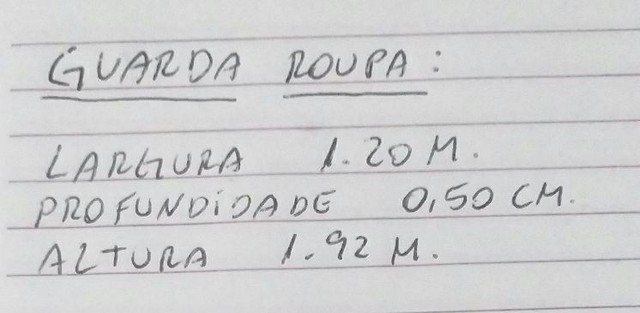 GUARDA ROUPA:
LARGURA 1.20 M.
PROFUNDIDADE 0,50 CM.
ALTURA 1.92 M.